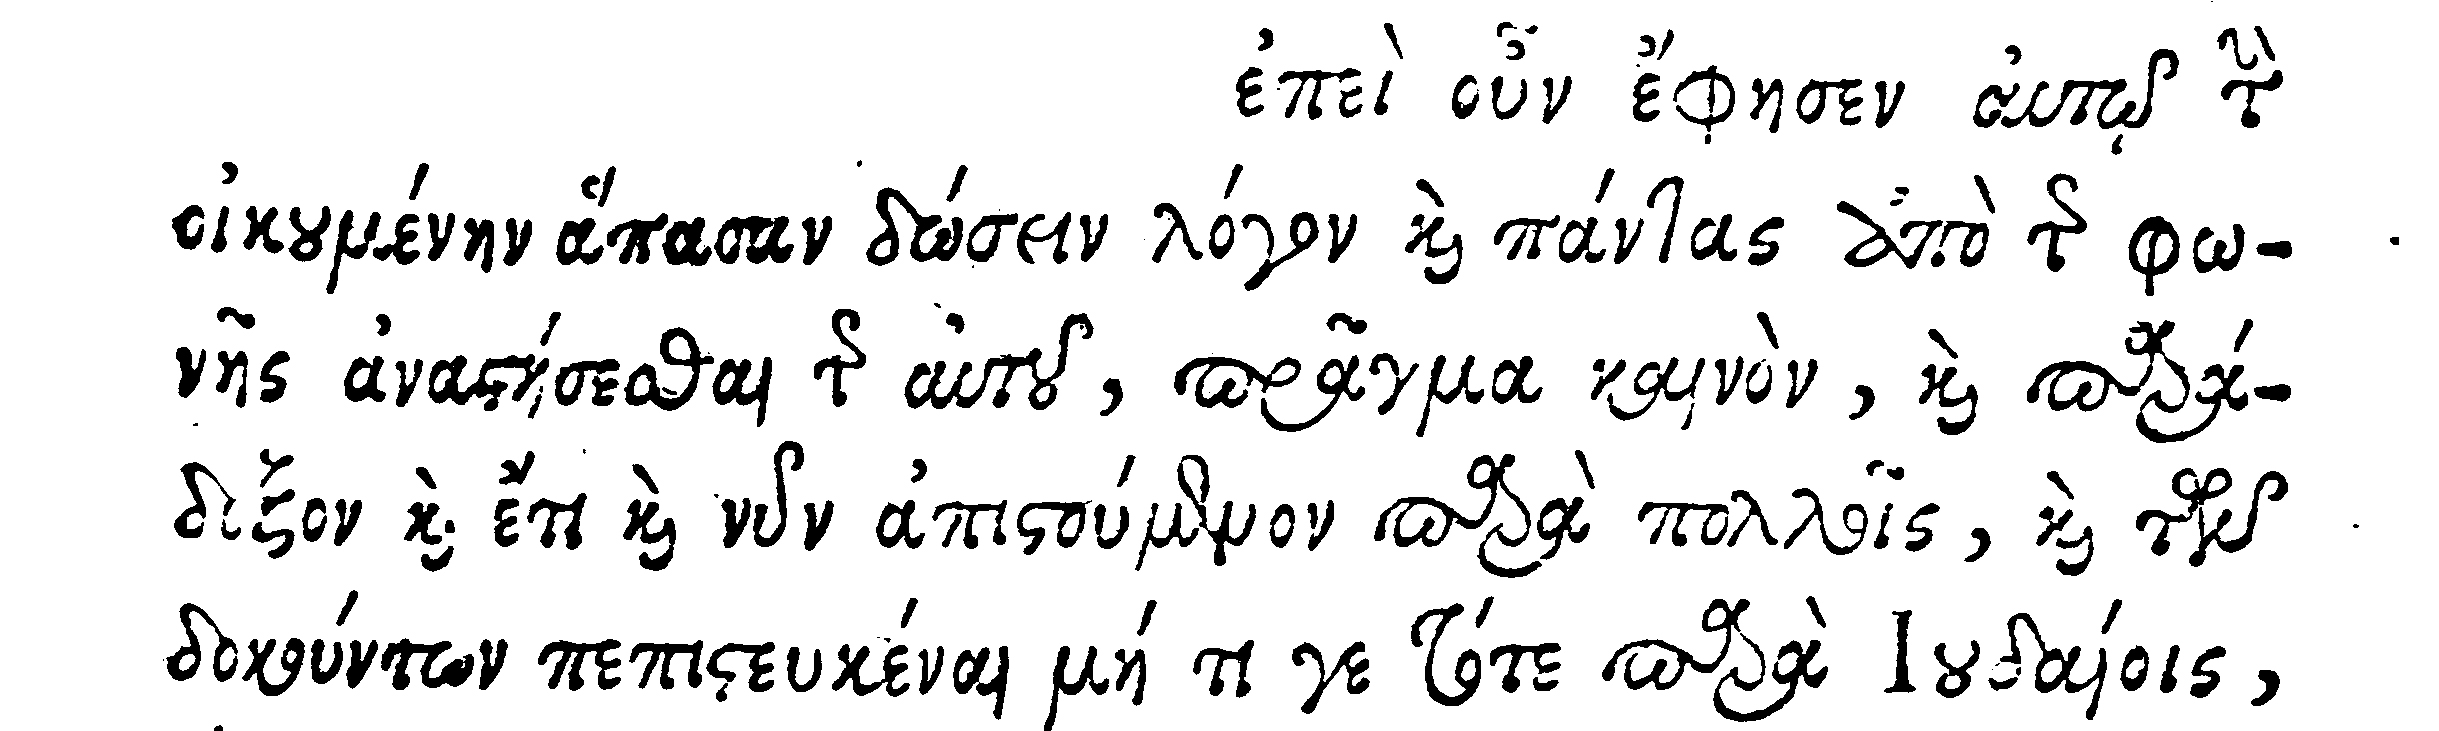 ἐπεὶ οὖν ἔφησεν αὐτῷ τὴν
οἰκουμένην ἅπασαν δώσειν λόγον καὶ πάντας ἀπὸ τῆς φω-
νῆς ἀναστήσεσθαι τῆς αὐτοῦ, πρᾶγμα καινὸν, καὶ παρά-
δοξον καὶ ἔτι καὶ νῦν ἀπιστούμενον παρὰ πολλοῖς, καὶ τῶν
δοκούντων πεπιστευκέναι μή τι γε τότε παρὰ Ἰουδαίοις,